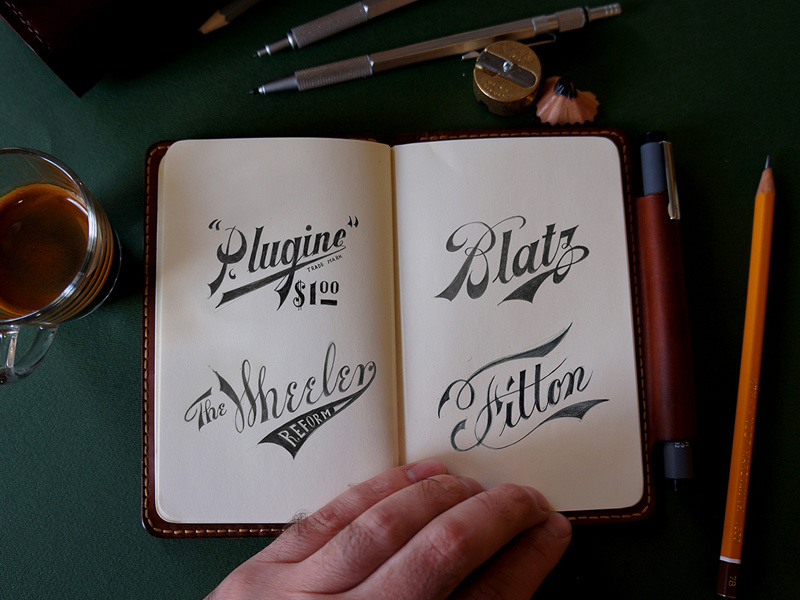 "Plugine"
TRADE MARK
$1.00
The Wheeler
REFORM
Blatz
Fitton
7B